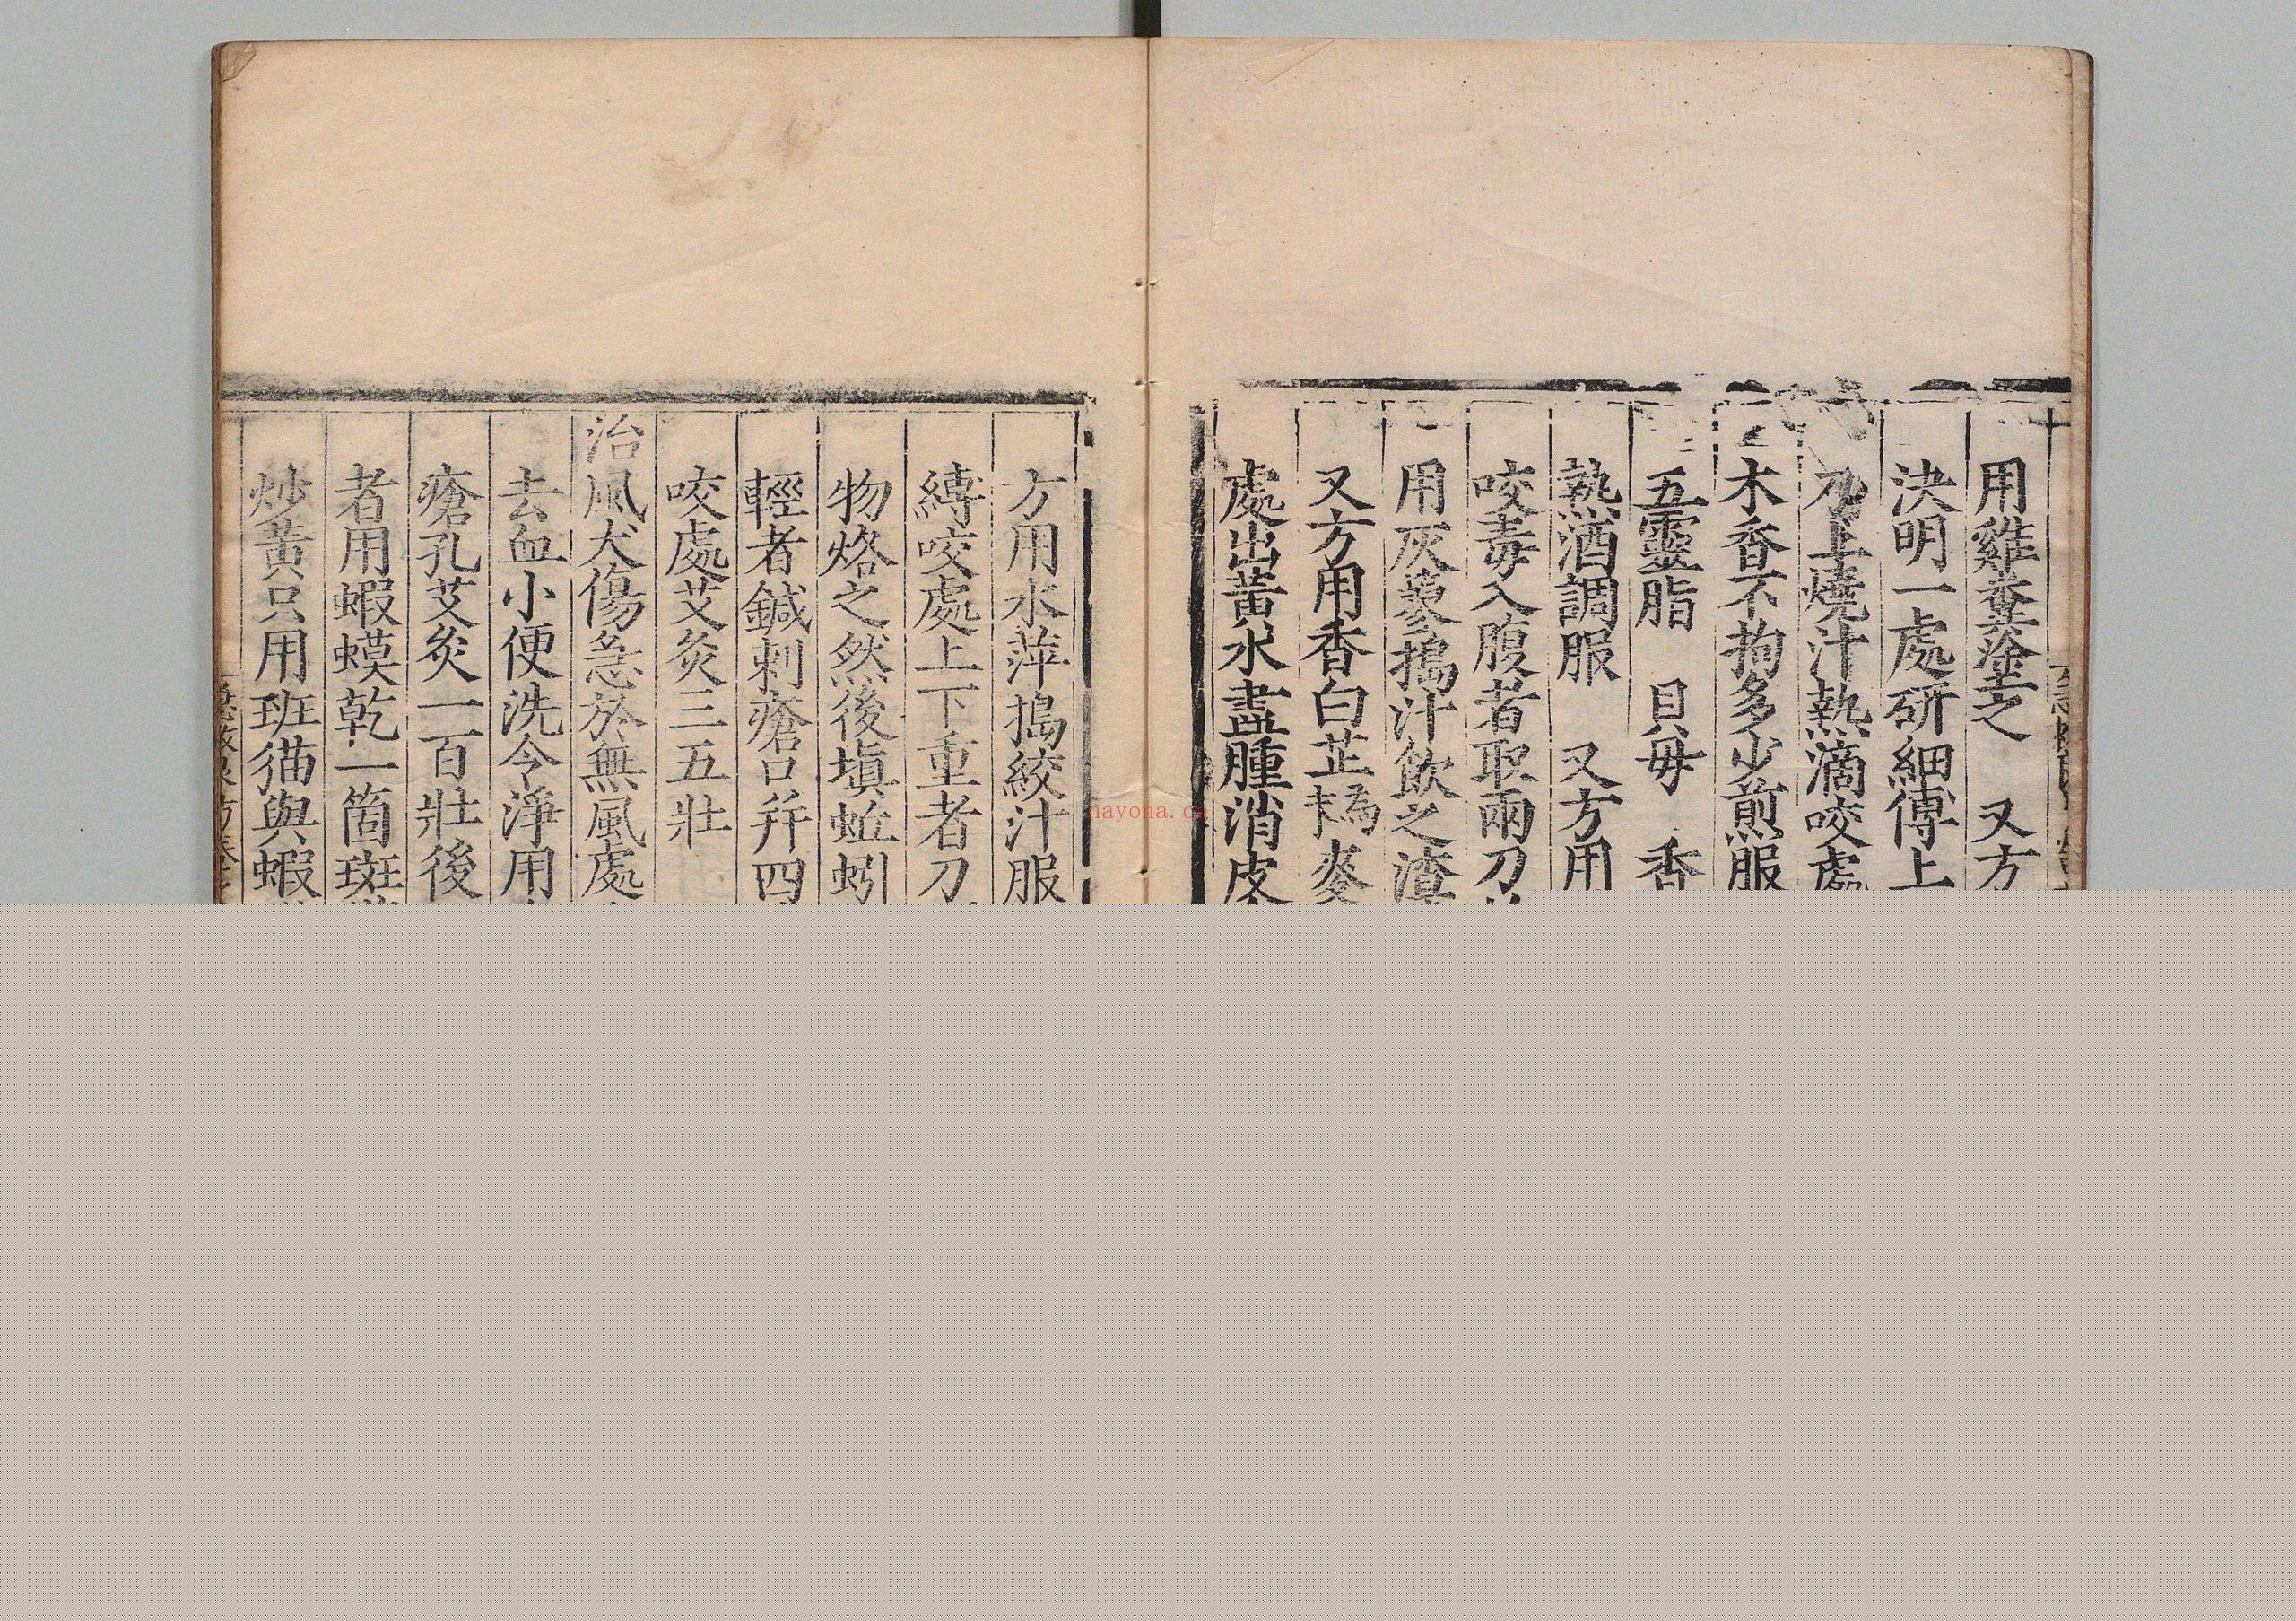 用雞糞塗之　又方
決明一處研細傅上
刀上燒汁熱滴咬處
木香不拘多少煎服
五靈脂　貝母　香
熱酒調服　又方用
咬毒入腹者取兩刀
用灰蓼搗汁飲之渣
又方用香白芷為麥
處出黃水盡腫消皮
方用水萍搗絞汁服
縛咬處上下重者刀
物烙之然後塡蚯蚓
輕者鍼刺瘡口幷四
咬處艾灸三五壯
治風犬傷急於無風處
去血小便洗令淨用
瘡孔艾灸一百壯後
者用蝦蟆乾一箇斑
炒黃只用班猫與蝦
nayona.cn